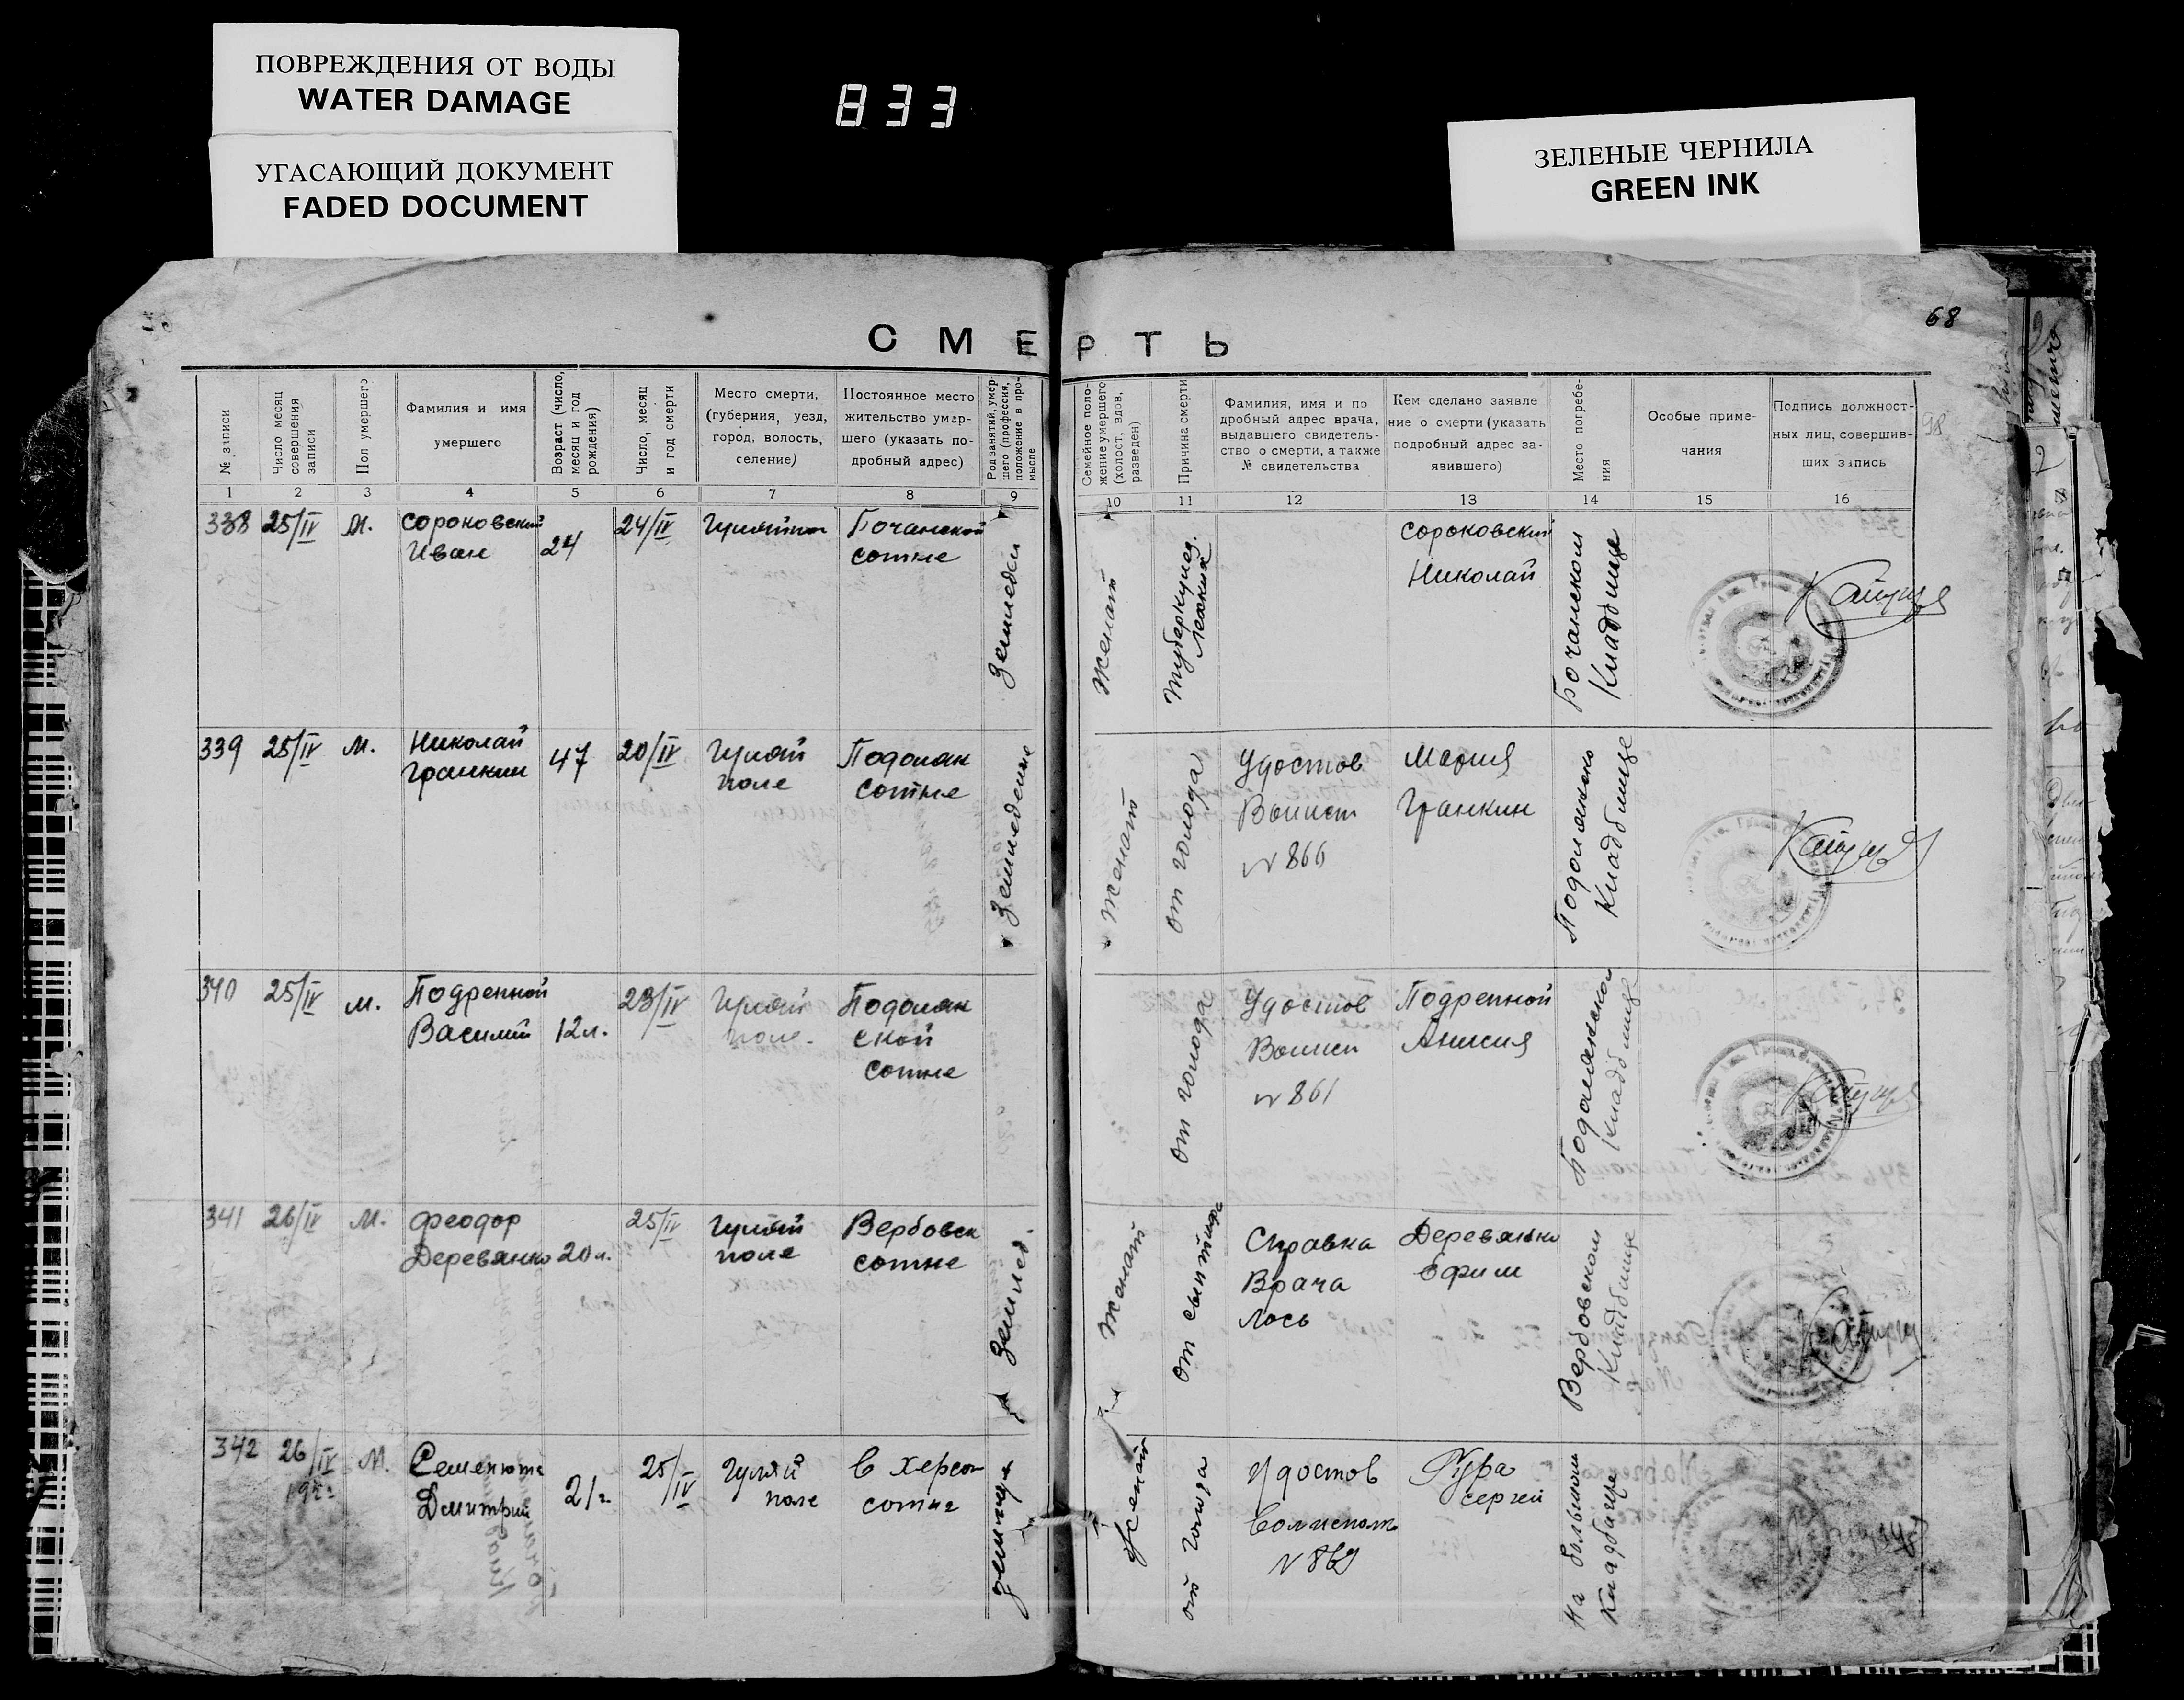 ПОВРЕЖДЕНИЯ ОТ ВОДЫ
WATER DAMAGE
УГАСАЮЩИЙ ДОКУМЕНТ
FADED DOCUMENT
833
ЗЕЛЕНЫЕ ЧЕРНИЛА
GREEN INK
68
СМЕРТЬ
№ записи
Число месяц
совершения
записи
Пол умершего
Фамилия и имя
умершего
Возраст (число,
месяц и год
рождения)
Число, месяц
и год смерти
Место смерти,
(губерния, уезд,
город, волость,
селение)
Постоянное место
жительство умер-
шего (указать по-
дробный адрес)
Род занятий, умер-
шего (профессия,
положение в про-
мысле
Семейное поло-
жение умершего
(холост, вдов,
разведен)
Причина смерти
Фамилия, имя и по
дробный адрес врача,
выдавшего свидетель-
ство о смерти, а также
№ свидетельства
Кем сделано заявле
ние о смерти (указать
подробный адрес за-
явившего)
Место погребе-
ния
Особые приме-
чания
Подпись должност-
ных лиц, совершив-
ших запись
98
1 2 3 4 5 6 7 8 9 10 11 12 13 14 15 16
338 25/IV М.
Сороковский
Иван
24
24/IV
Бочанской
сотне
Земледел
Женат
Туберкулез.
легких
Сороковский
Николай
Бочанском
Кладбище
339 25/IV М.
Николай
Гранкин
47
20/IV
Гуляй
поле
Подолян
сотне
Земледелие
Женат
от голода
Удостов
Волисп
№ 866
Мария
Гранкин
Подолянско
Кладбище
340 25/IV м.
Подренной
Василий
12 л.
23/IV
Гуляй
поле.
Подолян
ской
сотне
от голода
Удостов
Волисп
№ 861
Подрепной
Анисия
Подолянском
кладбище
341 26/IV М.
Феодор
Деревянко
20 л.
25/IV
Гуляй
поле
Вербовск
сотне
Землед.
Женат
Справка
Врача
Лось
Деревянко
Ефим
Вербовском
Кладбище
342 26/IV М.
Семенюта
Дмитрий
21 г.
25/IV
Гуляй
поле
в херсон
сотне
женат
от голода
Удостов
Волисполк
Сергей
На большом
Кладбище